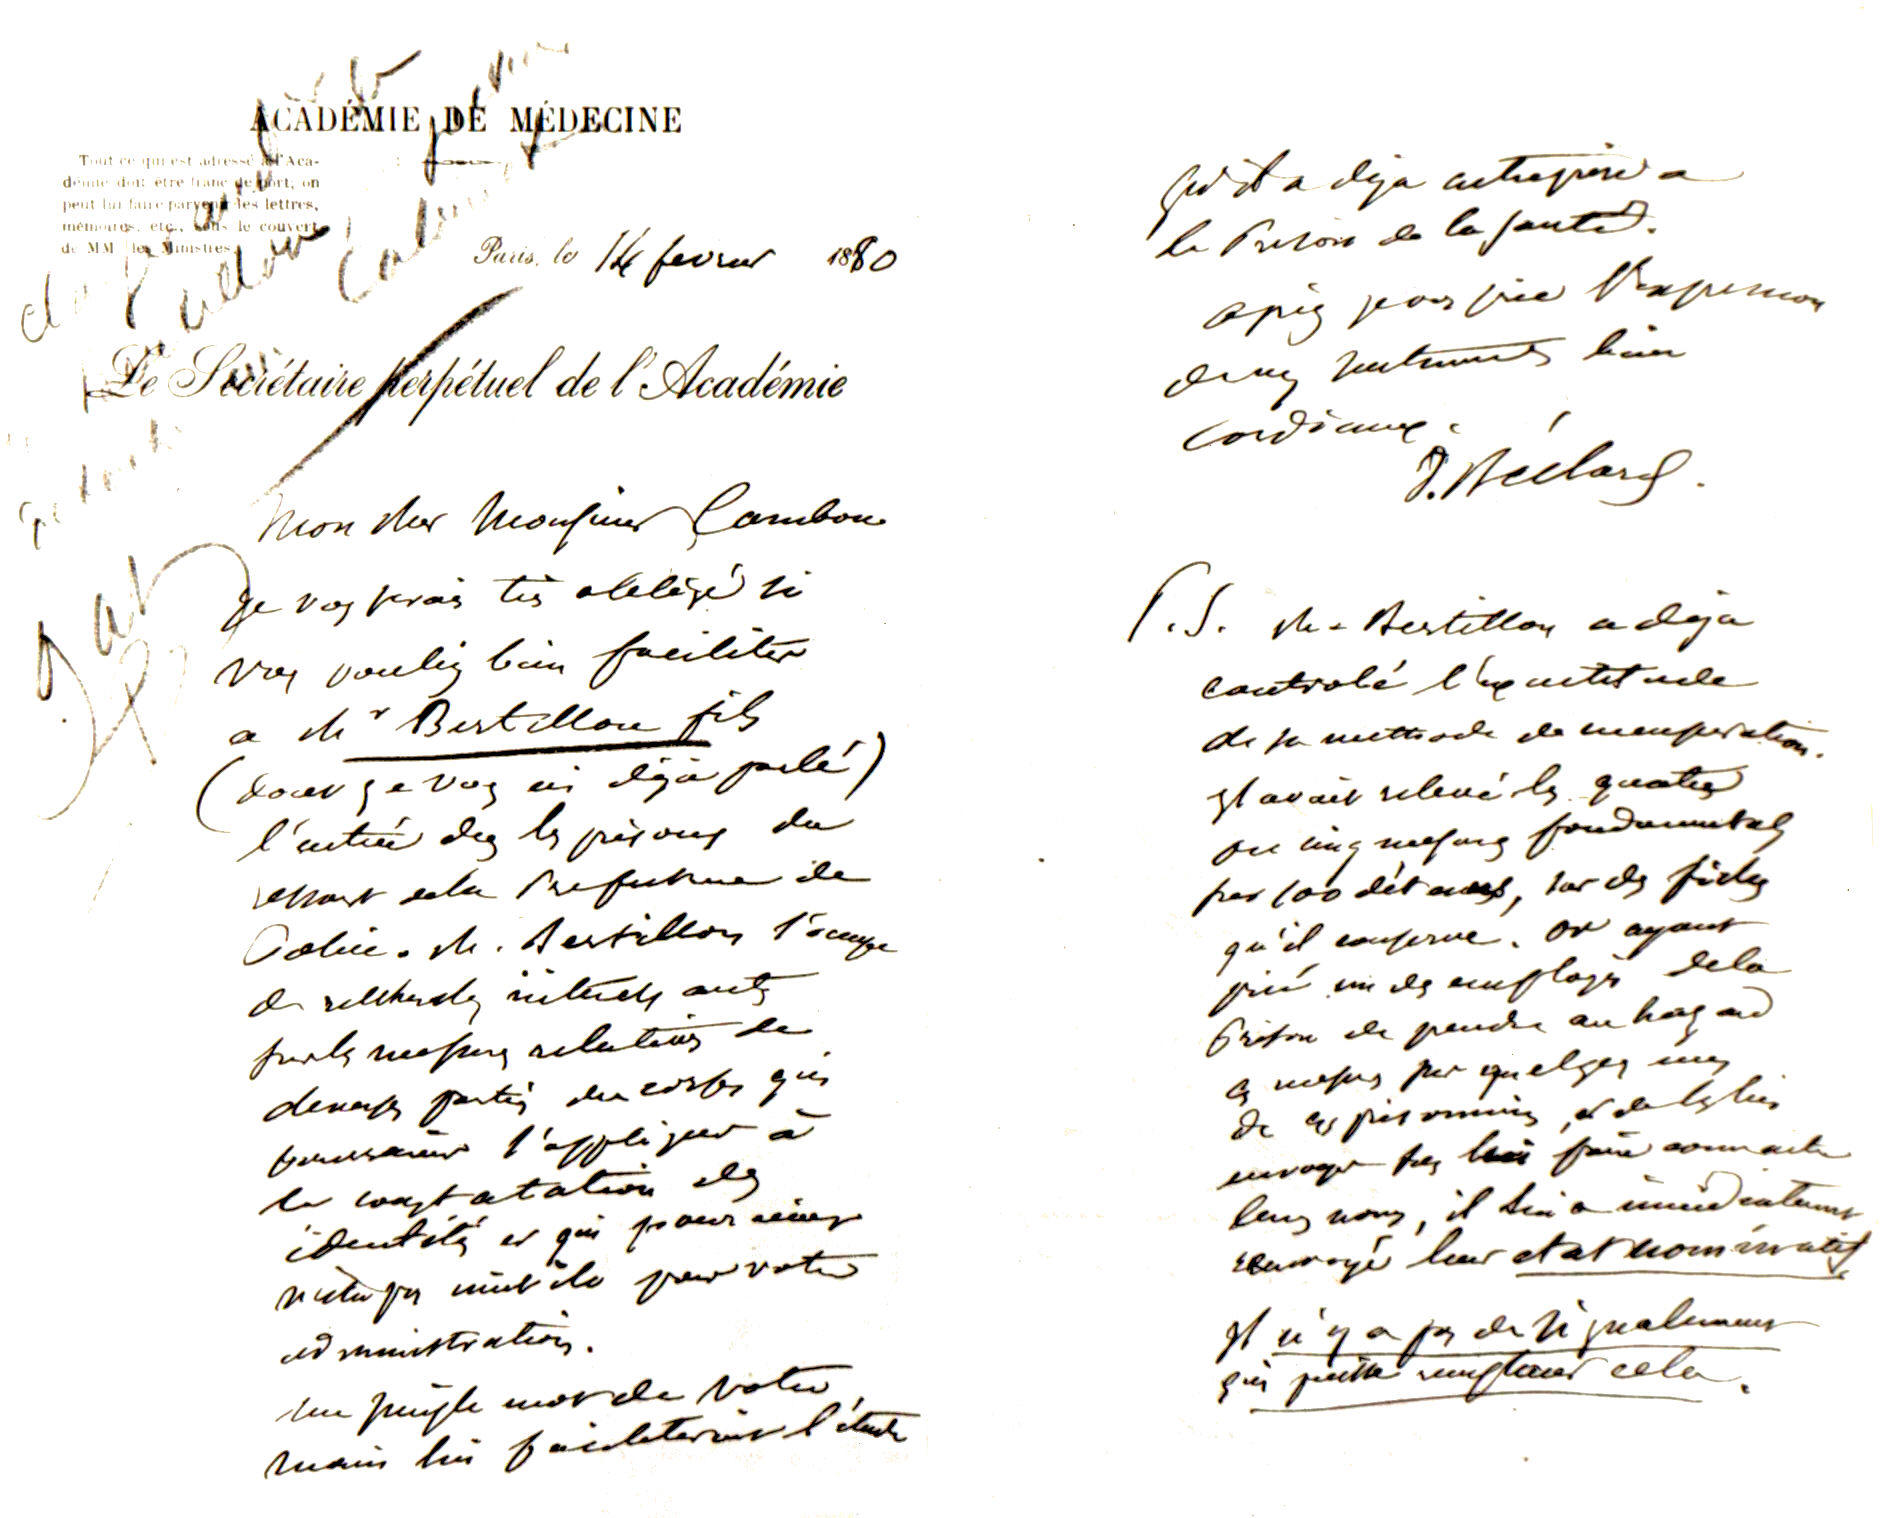 ACADÉMIE DE MÉDECINE
Tout ce qui est adressé à l'Aca-
démie doit être franc de port, on
peut lui faire parvenir les lettres,
mémoires, etc., sous le couvert
de MM les Ministres
Paris, le 14 fevrier 1880
Le Secrétaire perpétuel de l'Académie
Mon cher Monsieur Cambon
Je vous serais très obligé si
vous vouliez bien faciliter
a Mr Bertillon fils
(dont je vous ai déjà parlé)
l'entrée des les prisons du
ressort de la Prefecture de
Police. M. Bertillon s'occupe
de recherches intéressantes
sur les mesures relatives de
diverses parties du corps qui
pourraient s'appliquer à
la constatation des
identités et qui pourraient
n'être pas inutile pour votre
administration.
un simple mot de votre
main lui faciliterait l'étude
qu'il a déja entreprise a
la Prison de la Santé.
agréez je vous prie l'expression
de mes sentiments bien
cordiaux.
J. Béclard.
P.S. M. Bertillon a déja
controlé l'exactitude
de sa methode de mensuration.
Il avait relevé les quatre
ou cinq mesures fondamentales
sur 100 détenus, sur des fiches
qu'il conserve. Or ayant
prié un des employés de la
Prison de prendre au hazard
ces mesures sur quelques uns
de ces prisonniers, et de les lui
envoyer sans lui faire connaitre
leurs noms, il lui a immédiatement
renvoyé leur etat nominatif.
Il n'y a pas de signalement
qui puisse remplacer cela.